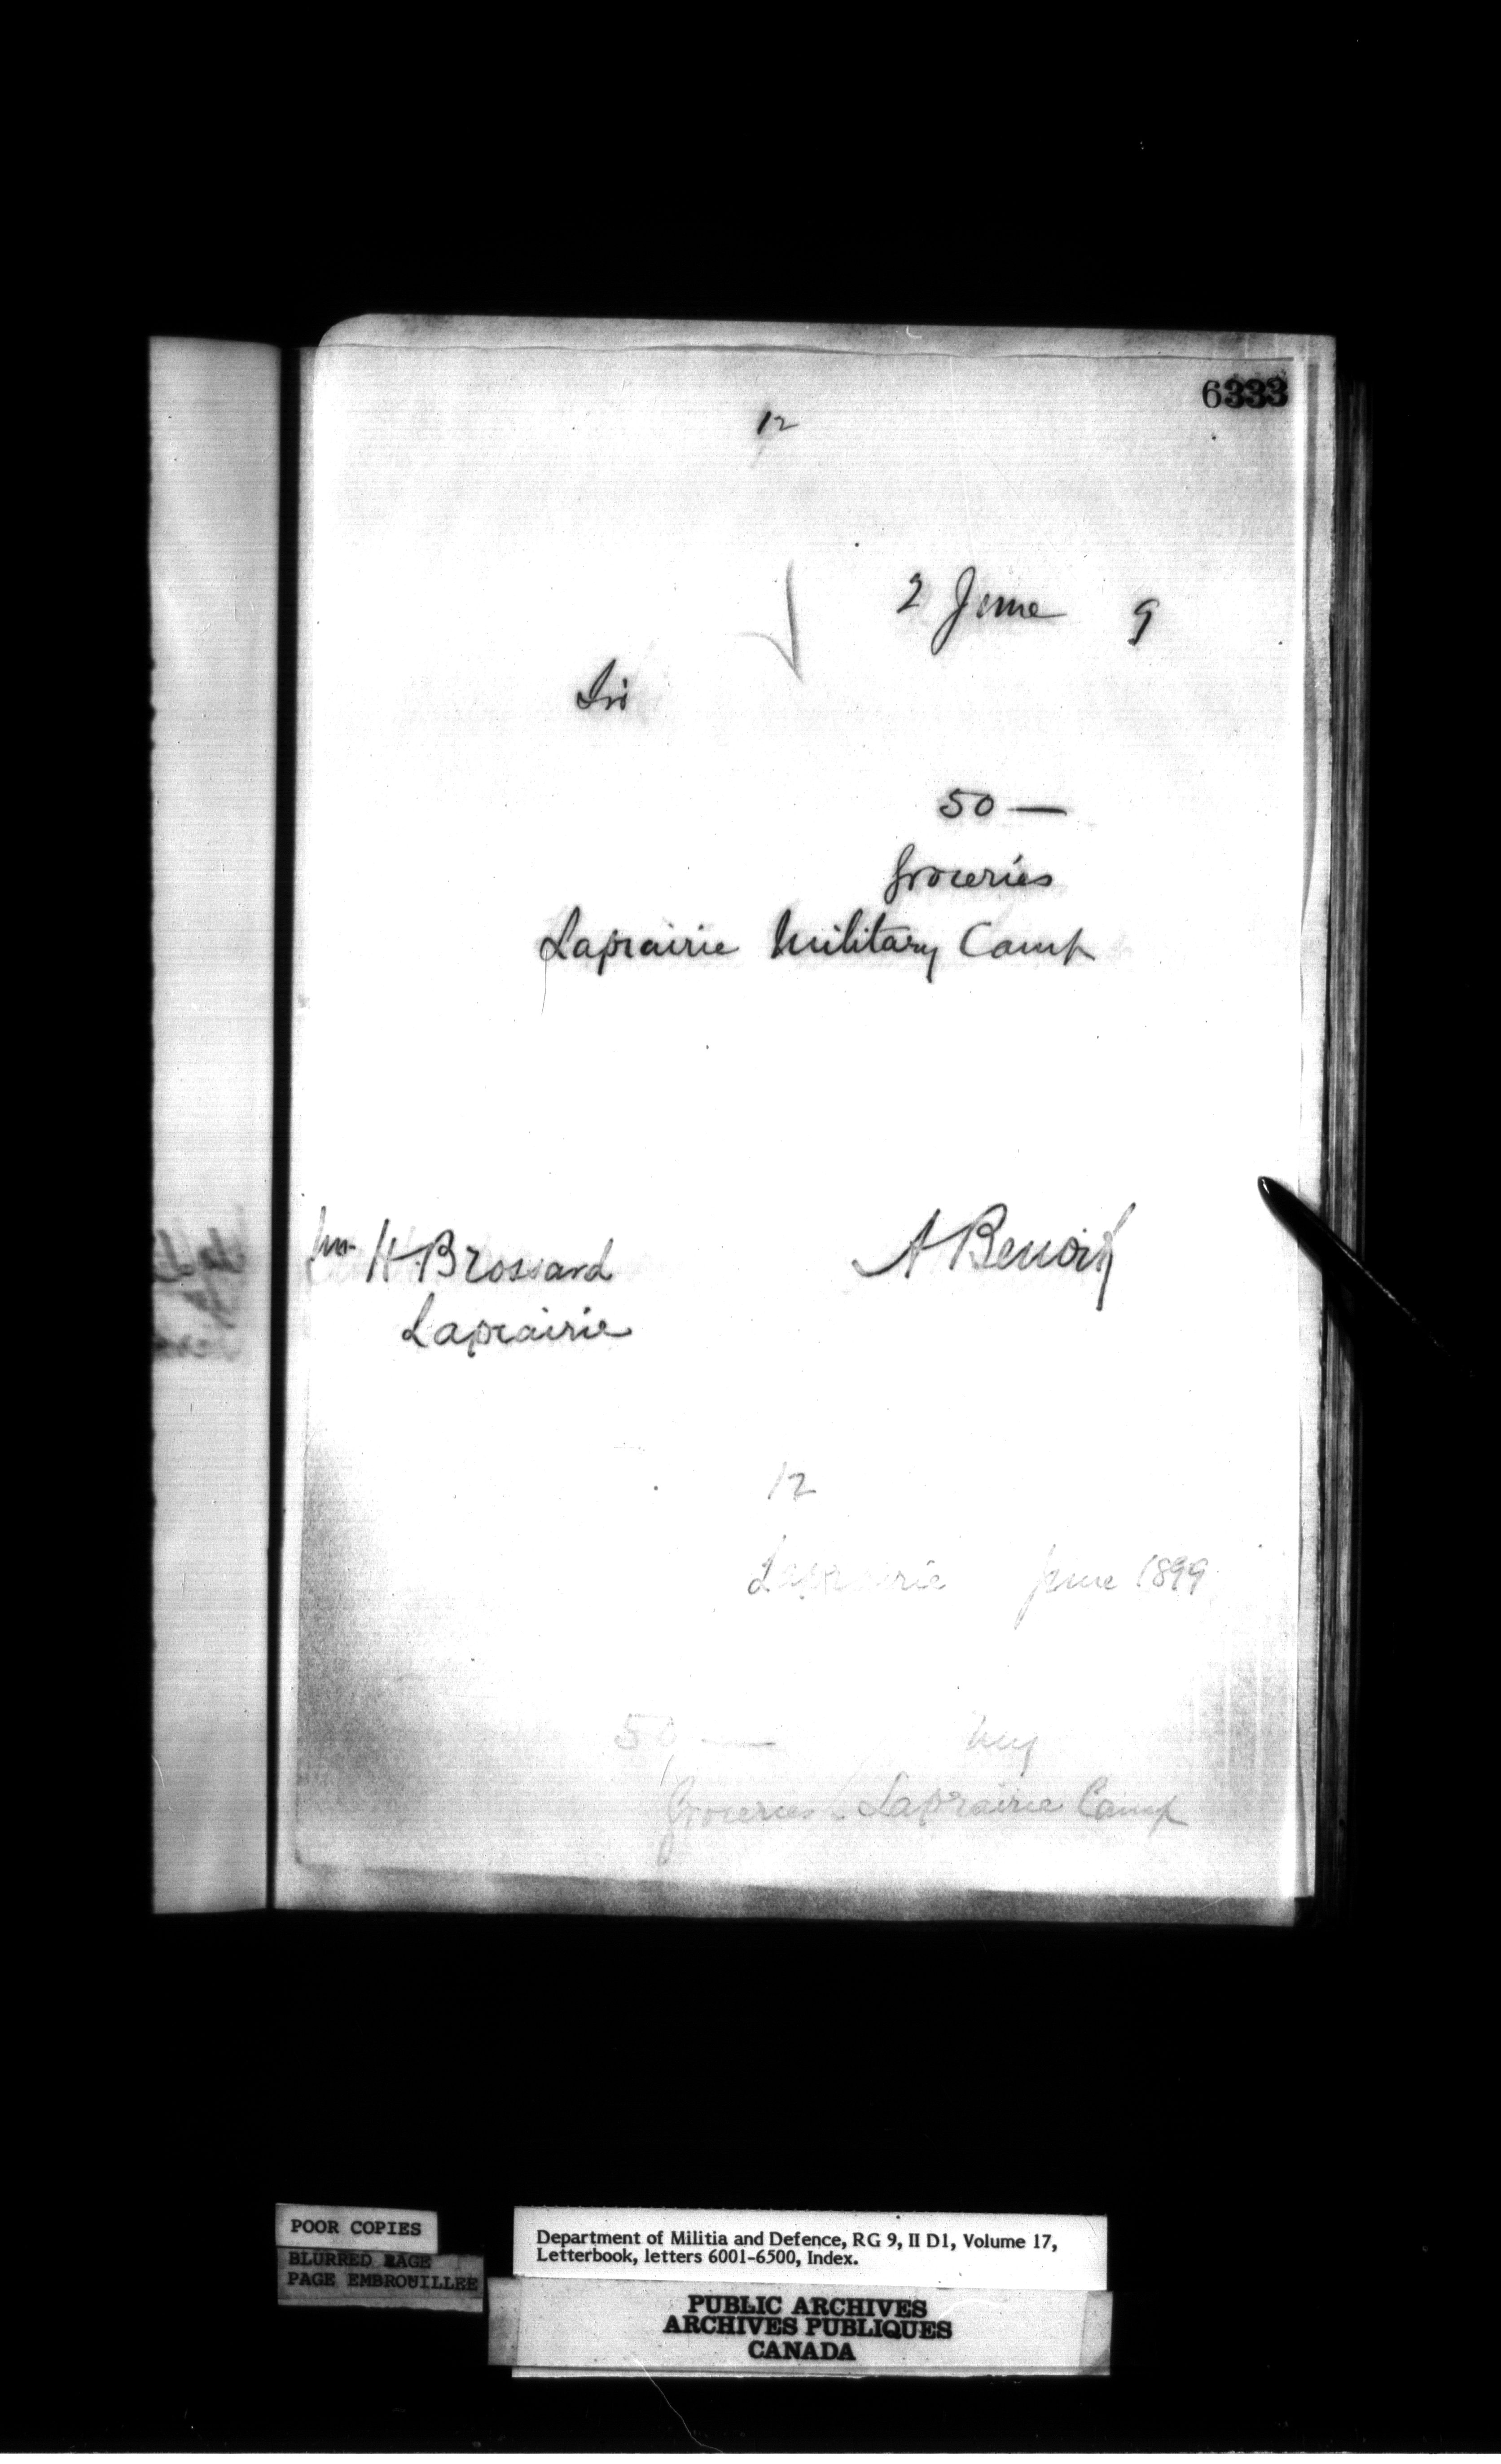 6333
12
2 June 9
Sir
50 —
Groceries
Laprairie Military Camp
A Benoit
H. Brossard
Laprairie
12
Laprairie June 1899
50 — my
Groceries - Laprairie Camp
POOR COPIES
BLURRED PAGE
PAGE EMBROUILLEE
Department of Militia and Defence, RG 9, II D1, Volume 17,
Letterbook, letters 6001-6500, Index.
PUBLIC ARCHIVES
ARCHIVES PUBLIQUES
CANADA